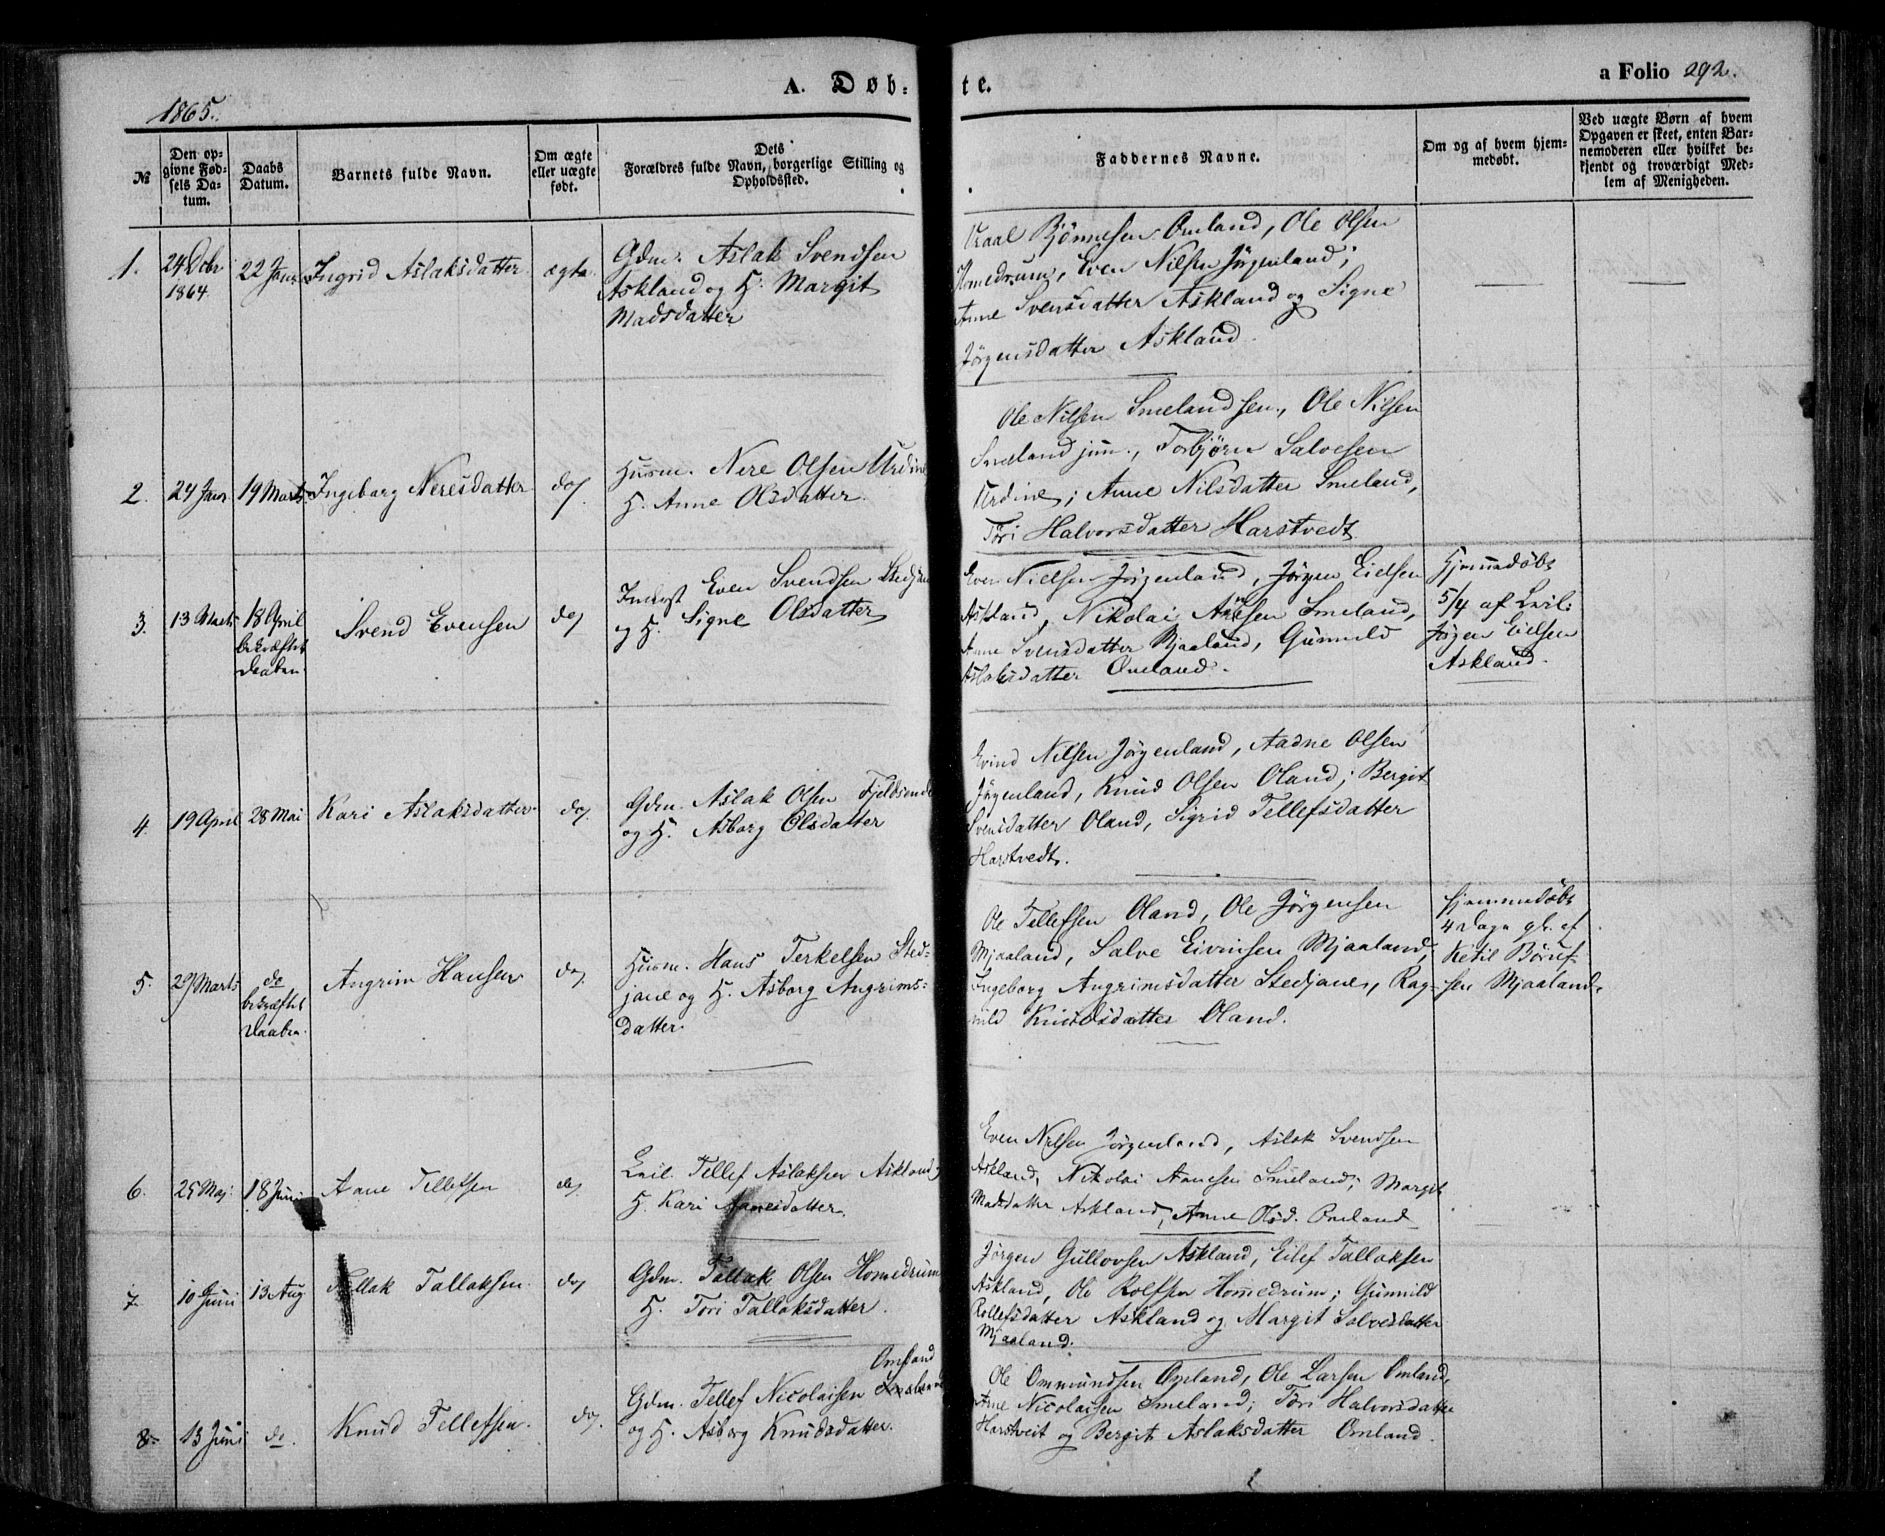 A. Döb: te.
a Folio 292.
1865.
No
Den op-
givne Fød-
sels Da-
tum.
Daabs
Datum.
Barnets fulde Navn.
Om ægte
eller uægte
født.
Dets
Forældres fulde Navn, borgerlige Stilling og
Opholdssted.
Faddernes Navne.
Om og af hvem hjem-
medøbt.
Ved uægte Børn af hvem
Opgaven er skeet, enten Bar-
nemoderen eller hvilket be-
kjendt og troværdigt Med-
lem af Menigheden.
1.
24 Dcbr
1864.
22 Janr
Ingrid Aslaksdatter
ægte.
Gdm. Aslak Svendsen
Askland og H. Margit
Madsdatter
Bjønnesen Omland, Ole Olsen
Homedrum, Even Nilsen Jörgenland;
Anne Svensdatter Askland og Signe
Jörgensdatter Askland.
2.
24 Janr
19 Marts
Ingeborg Neresdatter
do
Husm. Nere Olsen Urdine
H. Anne Olsdatter.
Ole Nilsen Smeland sen., Ole Nilsen
Smeland jun., Torbjörn Salvesen
Urdine; Anne Nilsdatter Smeland,
Töri Halvorsdatter Harstvedt
3.
13 Marts
18 April
bekræftet
Daaben
Svend Evensen
do
Inderst Even Svendsen Stedjane
og H. Signe Olsdatter
Even Nielsen Jörgenland, Jörgen Eielsen
Askland, Nikolai Smeland,
Anne Svensdatter Mjaaland, Gunnild
Aslaksdatter Omland.
Hjemmedöbt
5/4 af
Jörgen Eielsen
Askland.
4.
19 April
28 Mai
Kari Aslaksdatter
do
Gdm. Aslak Olsen
og H. Asborg Olsdatter
Eivind Nilsen Jörgenland, Aadne Olsen
Jörgenland, Knud Olsen Oland; Bergit
Svensdatter Oland, Sigrid Tellefsdatter
Harstvedt.
5.
29 Marts
do
bekræftet
Daaben.
Angrim Hansen
do
Husm. Hans Terkelsen Sted-
jane og H. Asborg Angrims-
datter
Ole Tellefsen Oland, Ole Jörgensen
Mjaaland, Salve Mjaaland,
Ingeborg Angrimsdatter Stedjane, Rag-
nild Oland.
Hjemmedöbt
4 Dage gl. af
Ketil
sen Mjaaland.
6.
25 Maj
18 Juni
Aane Tellefsen
do
Tellef Aslaksen Askland,
H. Kari Aanesdatter.
Even Nilsen Jörgenland, Aslak Svendsen
Askland, Nikolai Aanesen Smeland; Margit
Madsdatter Askland, Anne Olsd. Omland
7.
10 Juni
13 Aug
Tallaksen.
do
Gdm. Tallak Olsen Homedrum
H. Tori Tallaksdatter.
Jörgen Gullovsen Askland, Eilef Tallaksen
Askland, Ole Rolfsen Homedrum; Gunnild
Rollefsdatter Askland og Margit Salvesdatter
Mjaaland.
8.
15 Juni
do.
Knud Tellefsen.
do.
Omland
Gdm. Tellef Nicolaisen
og H. Asborg Knudsdatter.
Ole Ommundsen Omland, Ole Larsen Omland,
Arne Nicolaisen Smeland; Töri Halvorsdatter
Harstveit og Bergit Aslaksdatter Omland.